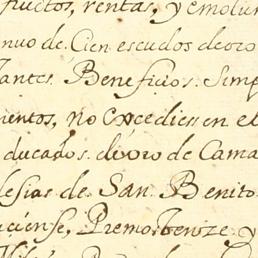 fructos, rentas, y emolum
nuo de Cien escudos de oro
tantes Beneficios Simp
mentos, no excediesen el
ducados de oro de Cama
lesias de San Benito
Premostenze y